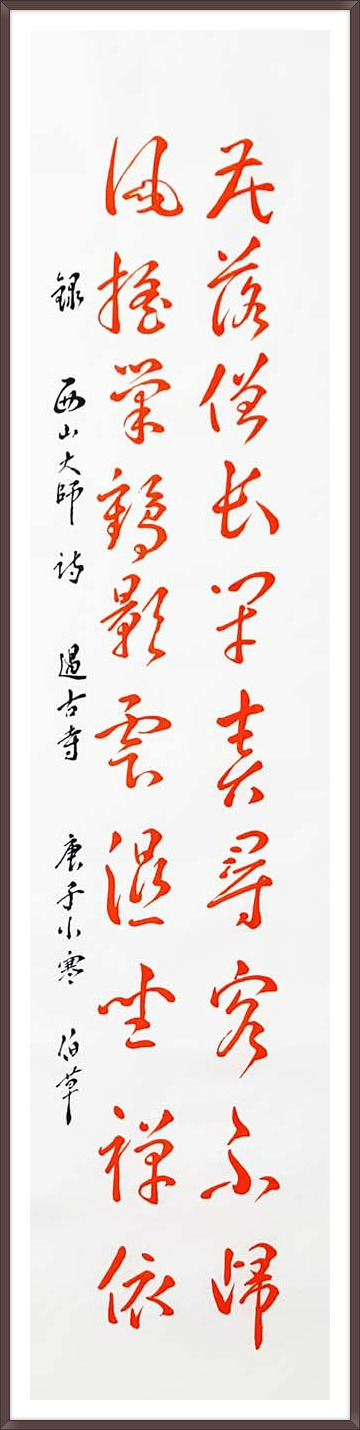 花落僧長閉春尋客不歸
風搖巢鶴影雲濕坐禪依
錄 西山大師 詩 過古寺 庚子小寒 伯草